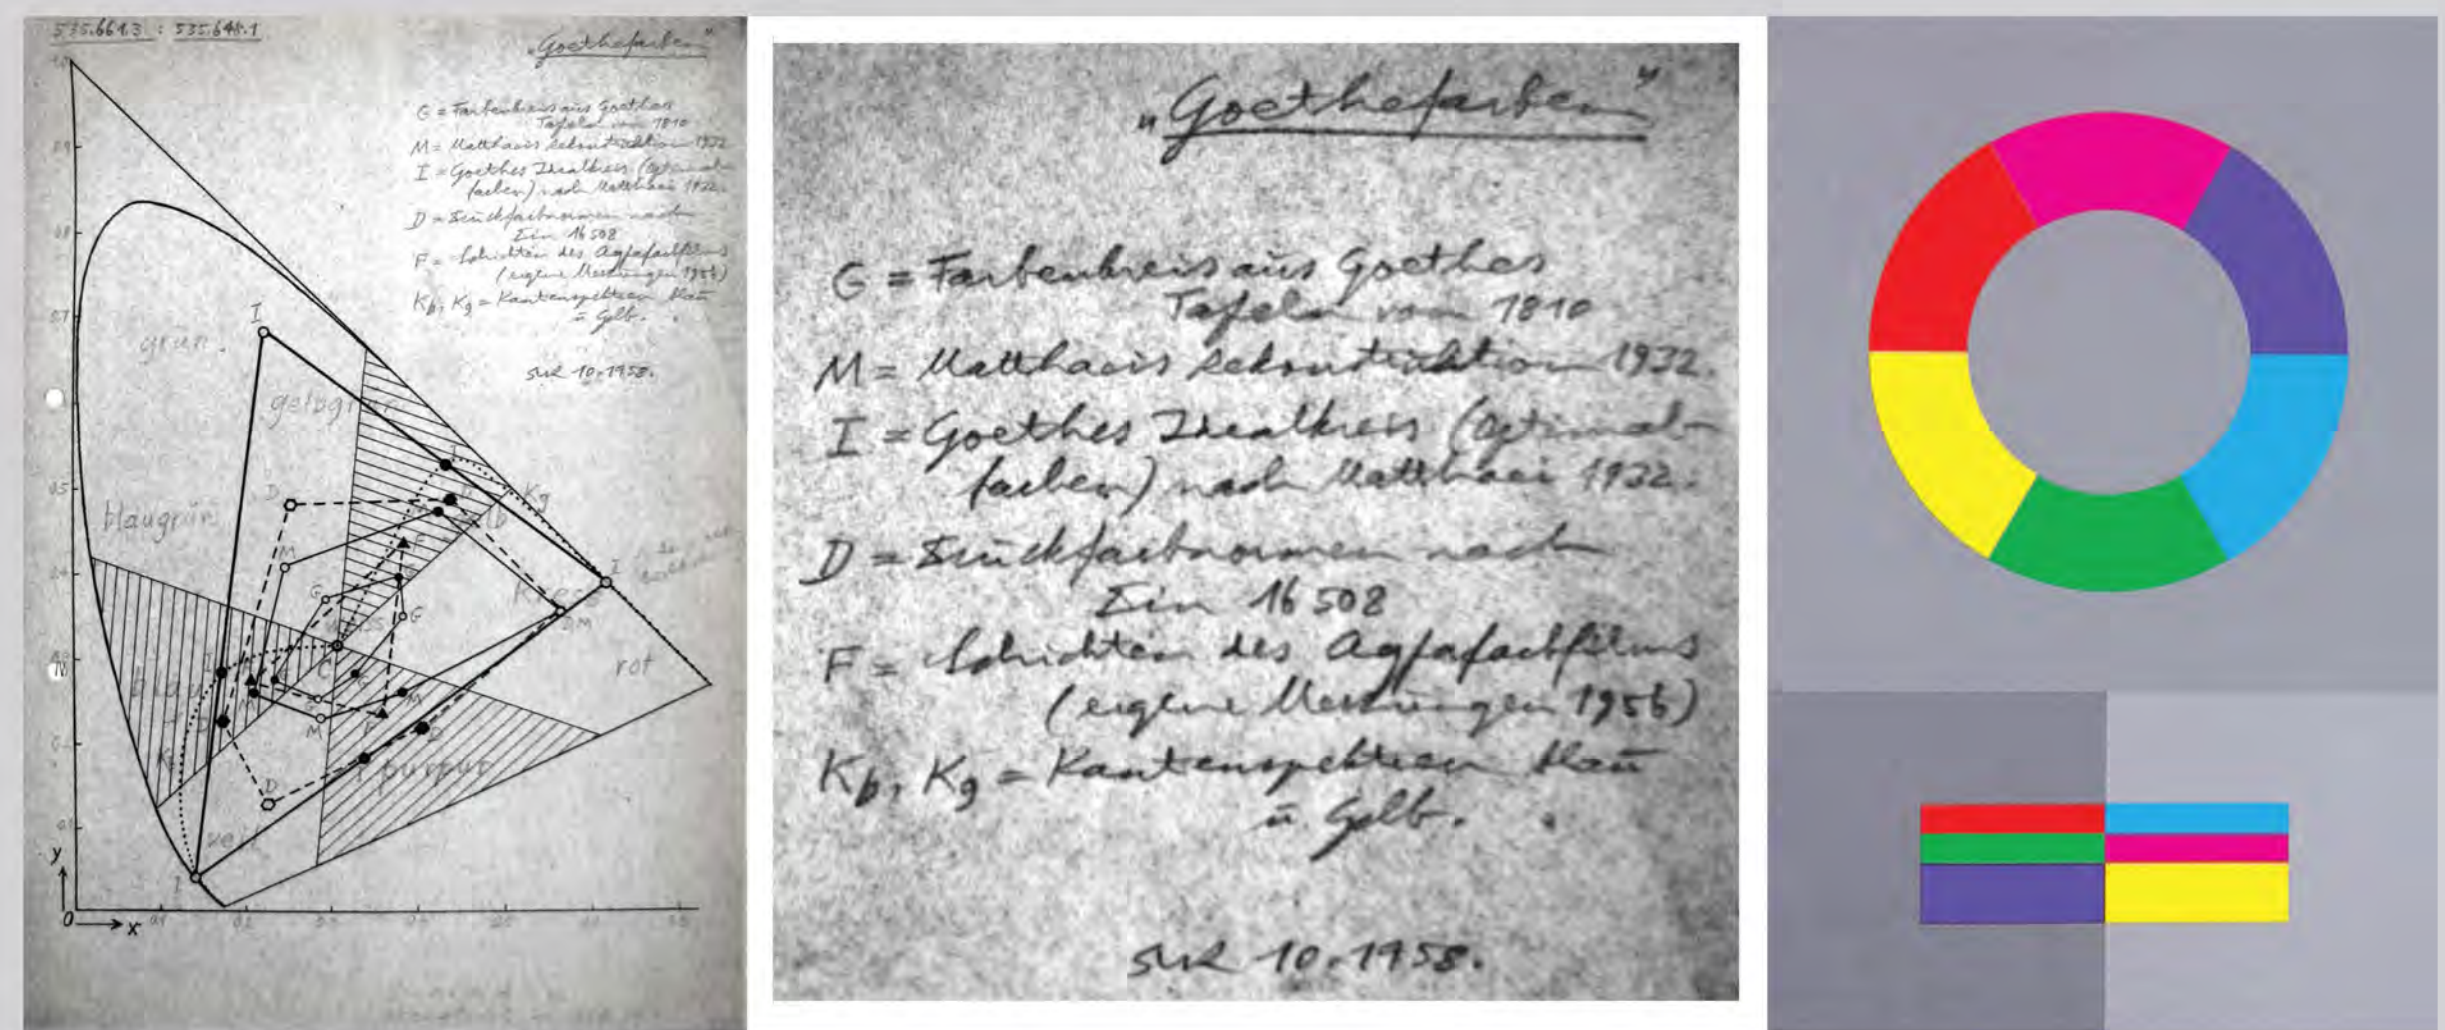 535.6613 : 535.648.1
„Goethefarben“
G = Farbenkreis aus Goethes
Tafeln von 1810
M = Matthaeis Rekonstruktion 1932
I = Goethes Idealkreis (Optimal-
farben) nach Matthaei 1932.
D = Druckfarbnormen nach
Din 16508
F = Schichten des Agfafarbfilms
(eigene Messungen 1956)
Kb, Kg = Kantenspektren blau
u Gelb.
10.1958.
1.0
0.9
0.8
0.7
I
grün.
gelbgrün
0.5
D
Kg
blaugrün
M
F
G
G
I
DM
rot
blau
D
M
M
D
D
purpur
I
y
0
x
„Goethefarben“
G = Farbenkreis aus Goethes
Tafeln von 1810
M = Matthaeis Rekonstruktion 1932.
I = Goethes Idealkreis (Optimal-
farben) nach Matthaei 1932.
D = Druckfarbnormen nach
Din 16508
F = Schichten des Agfafarbfilms
(eigene Messungen 1956)
Kb, Kg = Kantenspektren blau
u. Gelb.
10.1958.